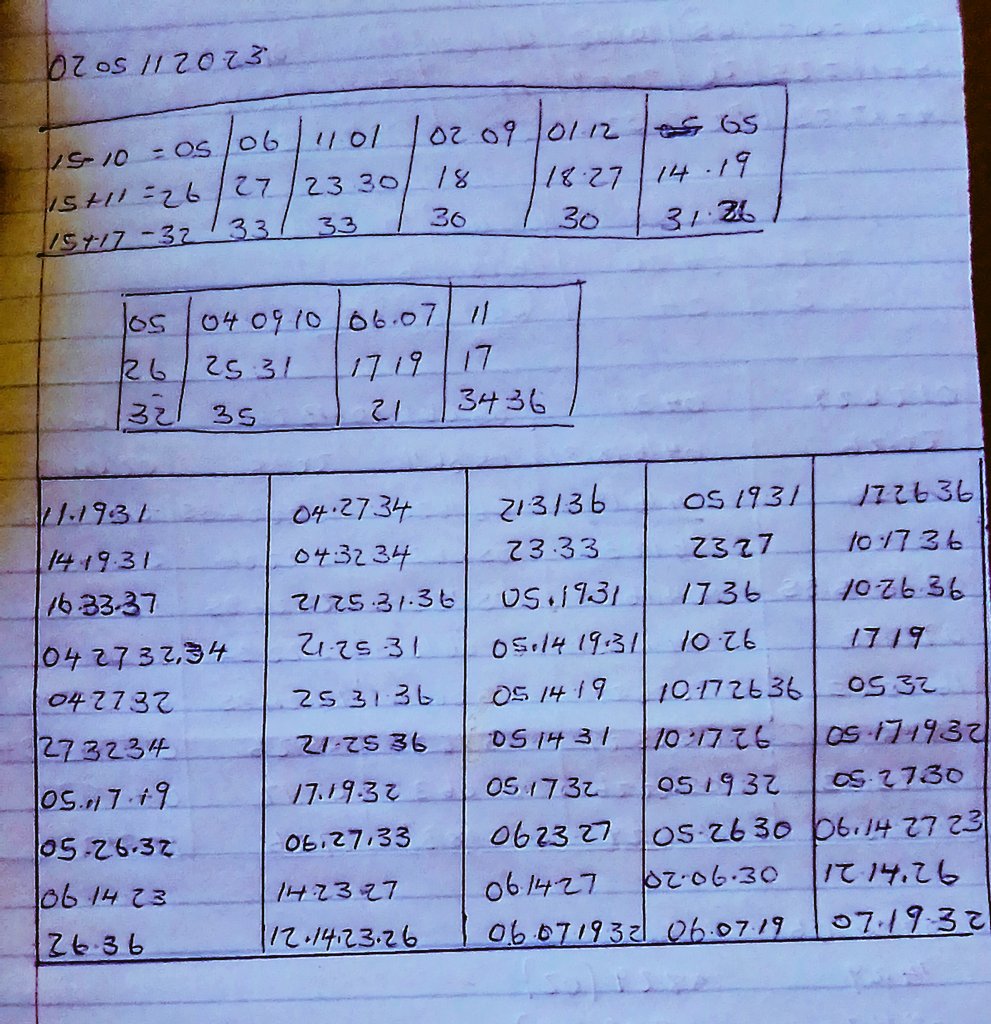 02 05 11 2023
15-10 = 05 06 11 01 02 09 01 12 05
15+11 = 26 27 23 30 18 18.27 14.19
15+17 - 32 33 33 30 30 31.26
05 04 09 10 06.07 11
26 25.31 17 19 17
32 35 21 34 36
11.19.31 04.27 34 21 31 36 05 19 31 17 26 36
14.19.31 04.32 34 23.33 23 27 10.17 36
16.33.37 21 25.31.36 05.19.31 17 36 10.26.36
04 27 32.34 21.25.31 05.14 19.31 10 26 17 19
04 27 32 25 31 36 05 14 19 10.17 26 36 05 32
27 32 34 21.25 36 05 14 31 10.17 26 05.17.19.32
05.17.19 17.19.32 05.17 32 05 19 32 05.27.30
05.26.32 06.27.33 06 23 27 05.26 30 06.14 27 23
06 14 23 14 23 27 06 14 27 02.06.30 12 14.26
26.36 12.14.23.26 06.07 19 32 06.07.19 07.19.32